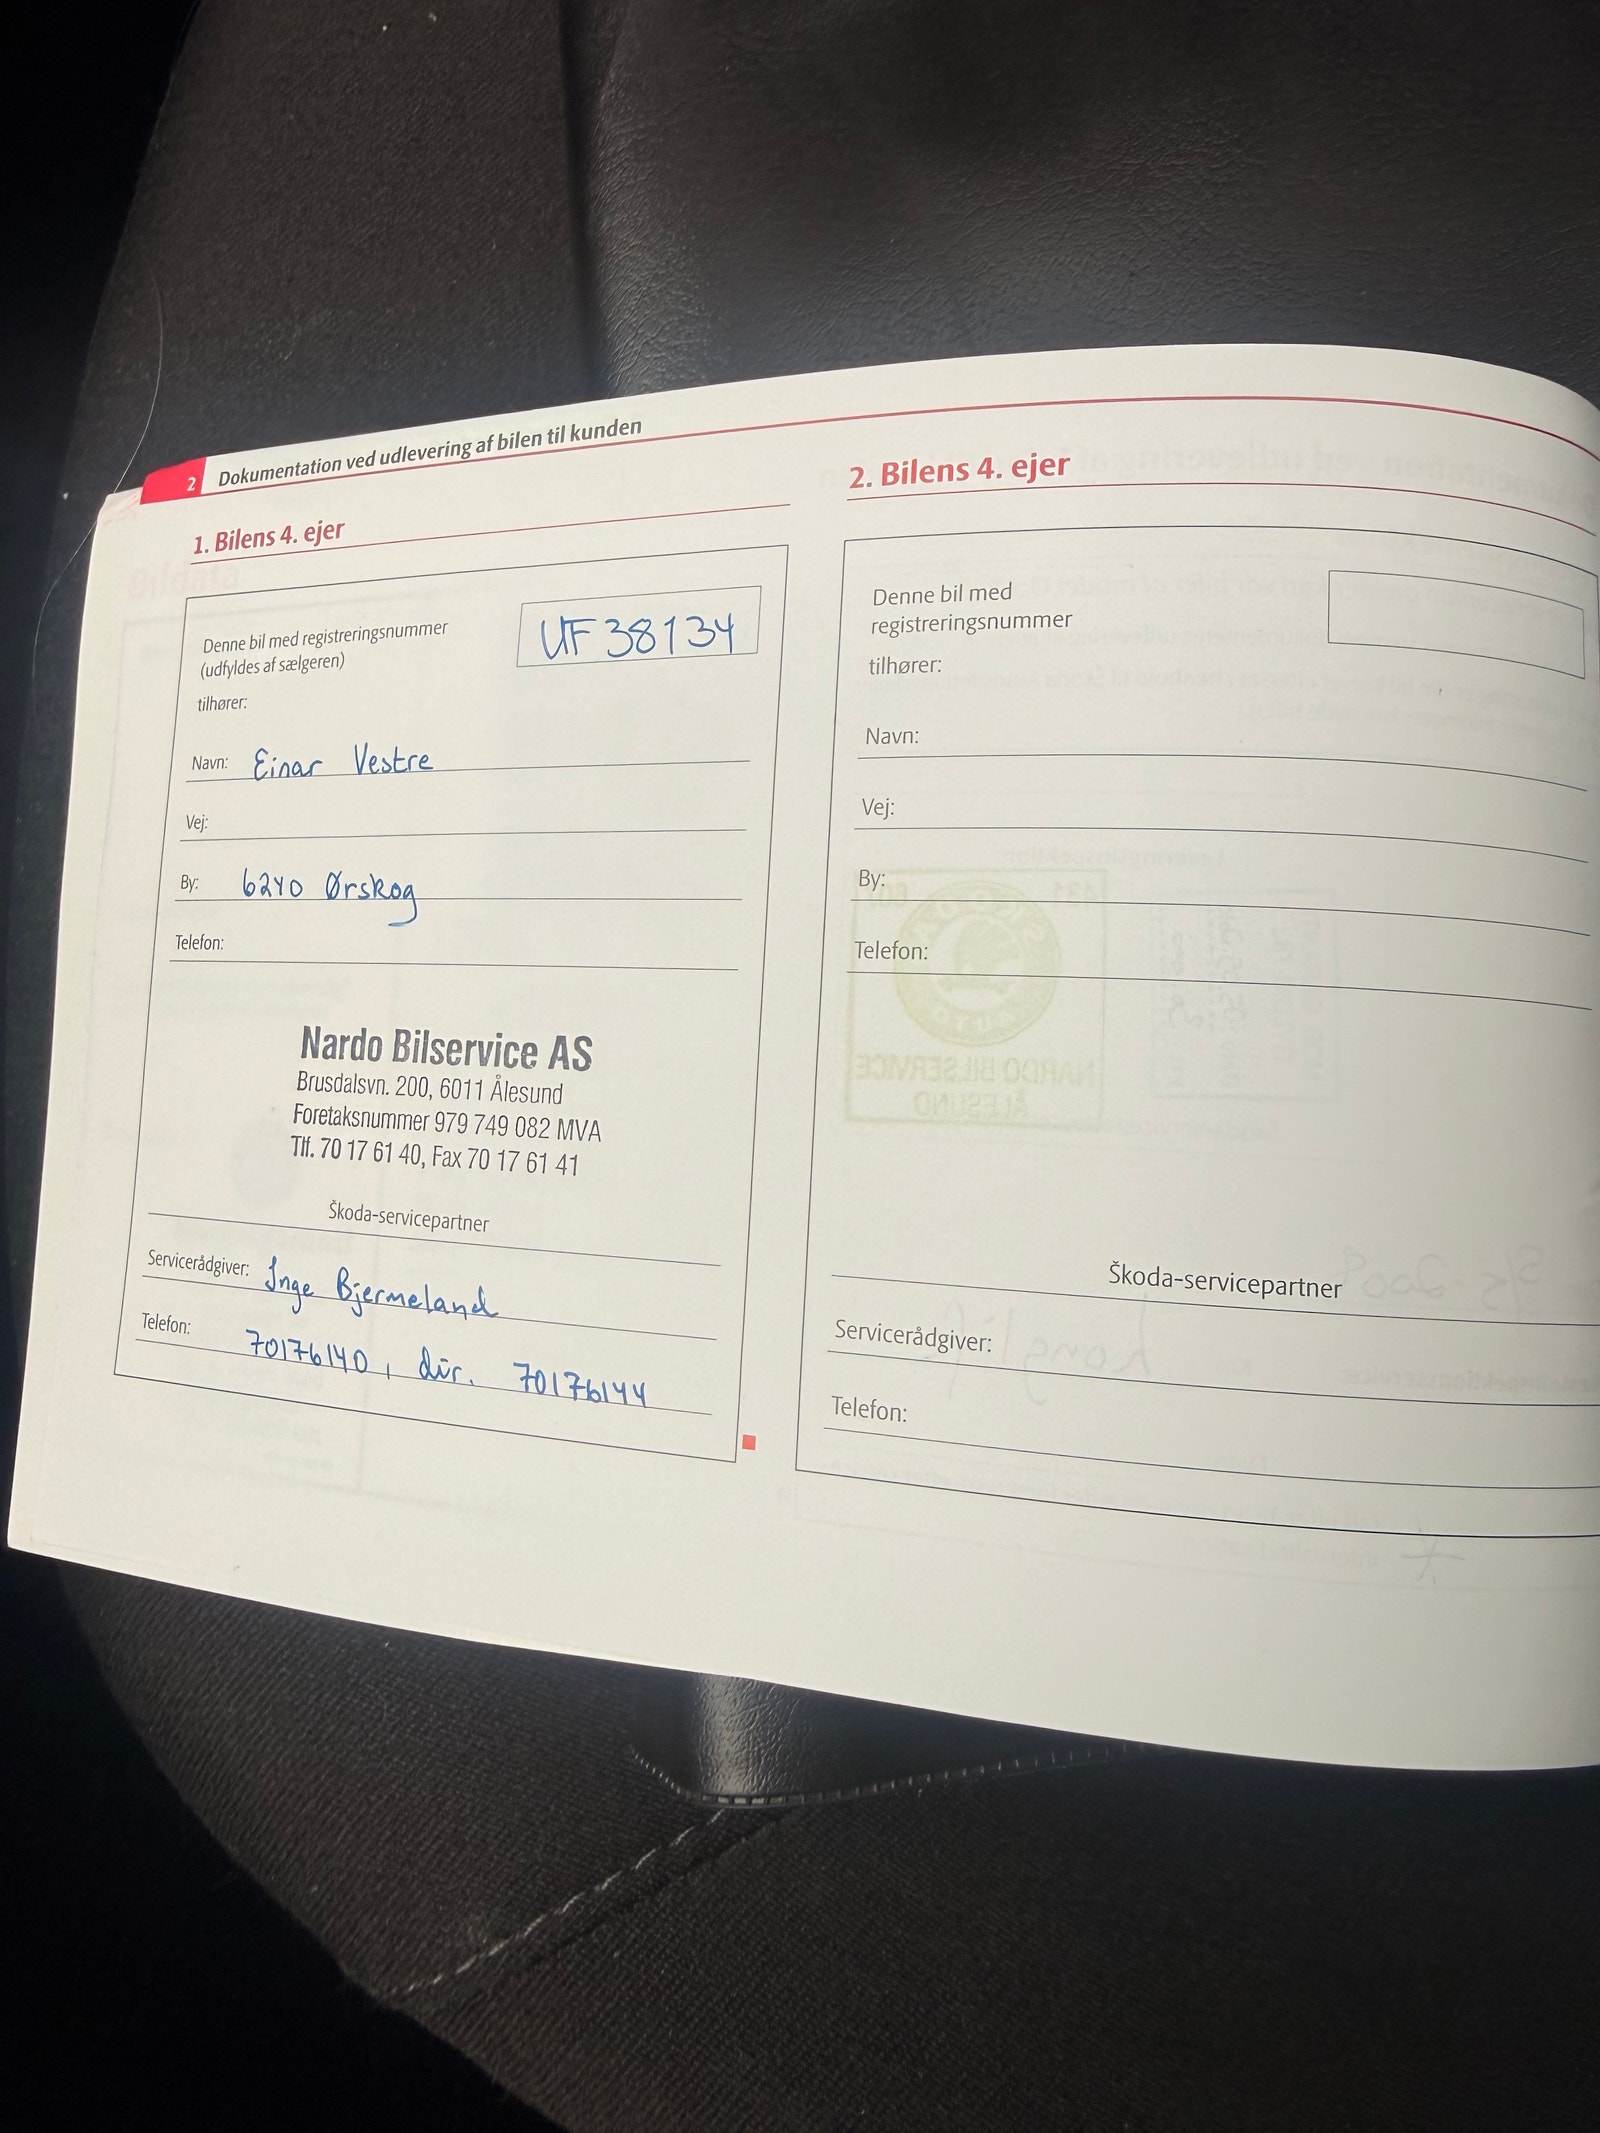 2 Dokumentation ved udlevering af bilen til kunden
1. Bilens 4. ejer
Denne bil med registreringsnummer
(udfyldes af sælgeren)
UF 38134
tilhører:
Navn: Einar Vestre
Vej:
By: 6240 Ørskog
Telefon:
Nardo Bilservice AS
Brusdalsvn. 200, 6011 Ålesund
Foretaksnummer 979 749 082 MVA
Tlf. 70 17 61 40, Fax 70 17 61 41
Škoda-servicepartner
Servicerådgiver: Inge Bjermeland
Telefon: 70176140, dir. 70176144
2. Bilens 4. ejer
Denne bil med
registreringsnummer
tilhører:
Navn:
Vej:
By:
Telefon:
Škoda-servicepartner
Servicerådgiver:
Telefon: